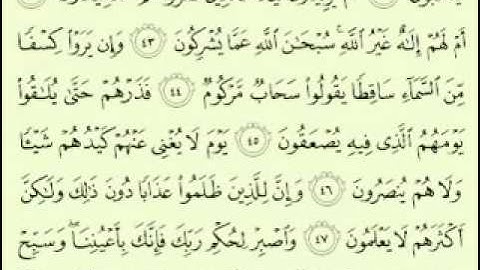 أَمْ لَهُمْ إِلَٰهٌ غَيْرُ ٱللَّهِ ۚ سُبْحَٰنَ ٱللَّهِ عَمَّا يُشْرِكُونَ ٤٣ وَإِن يَرَوْا۟ كِسْفًا
مِّنَ ٱلسَّمَآءِ سَاقِطًا يَقُولُوا۟ سَحَابٌ مَّرْكُومٌ ٤٤ فَذَرْهُمْ حَتَّىٰ يُلَٰقُوا۟
يَوْمَهُمُ ٱلَّذِى فِيهِ يُصْعَقُونَ ٤٥ يَوْمَ لَا يُغْنِى عَنْهُمْ كَيْدُهُمْ شَيْـًٔا
وَلَا هُمْ يُنصَرُونَ ٤٦ وَإِنَّ لِلَّذِينَ ظَلَمُوا۟ عَذَابًا دُونَ ذَٰلِكَ وَلَٰكِنَّ
أَكْثَرَهُمْ لَا يَعْلَمُونَ ٤٧ وَٱصْبِرْ لِحُكْمِ رَبِّكَ فَإِنَّكَ بِأَعْيُنِنَا ۖ وَسَبِّحْ